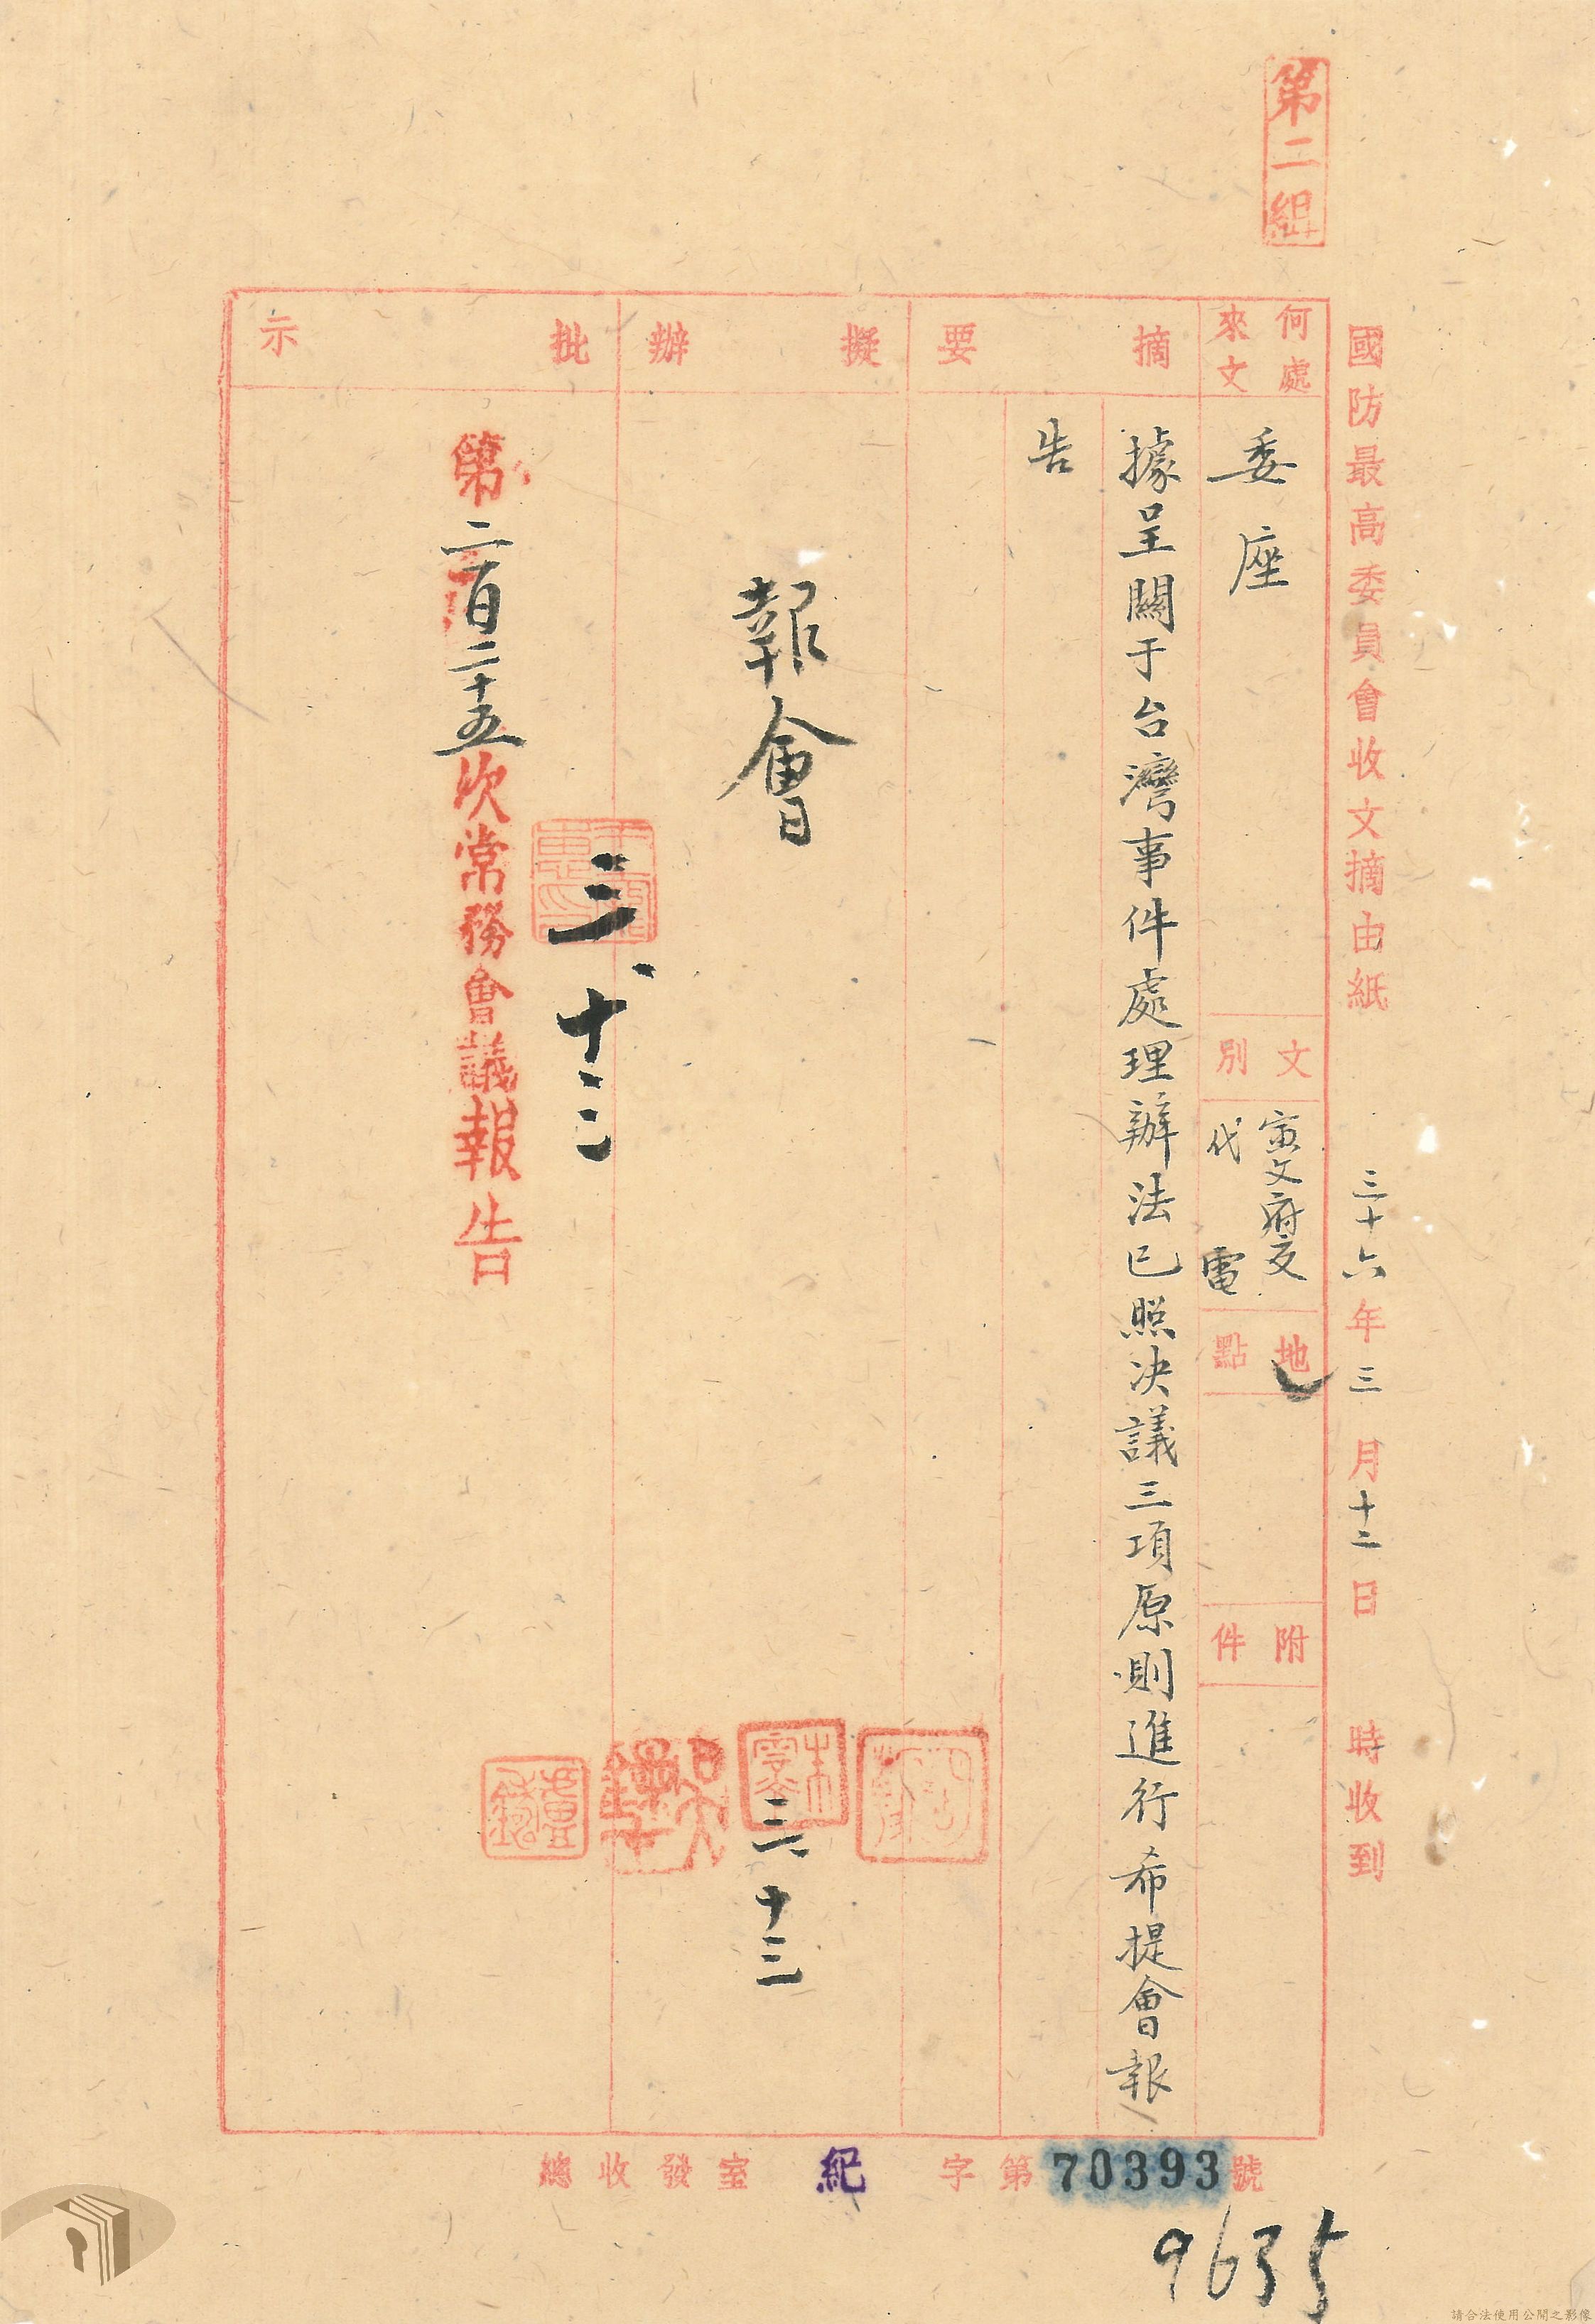 第二組
國防最高委員會收文摘由紙 三十六年三月十二日 時收到
何處來文
委座
文別
寅文府交
代電
地點
附件
摘要
據呈關于台灣事件處理辦法已照決議三項原則進行希提會報
告
擬辦
報會
三、十三
批示
三、十二
第二百二十五次常務會議報告
總收發室 紀 字第70393號
9635
請合法使用公開之影像